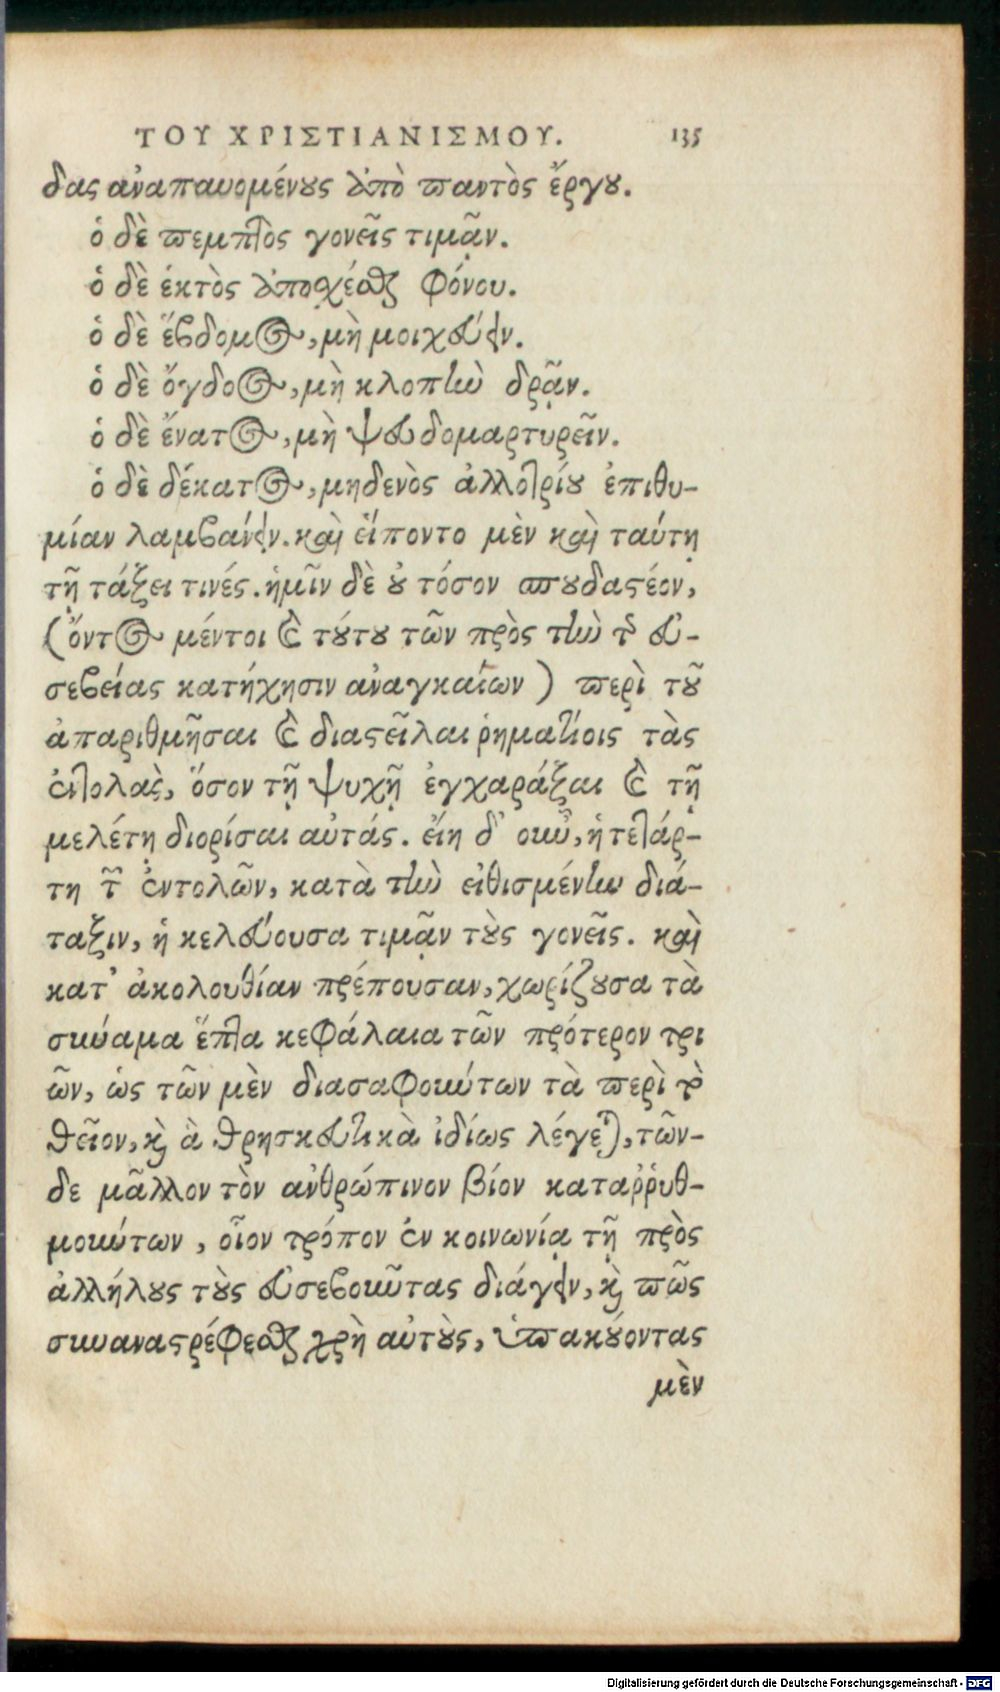 ΤΟΥ ΧΡΙΣΤΙΑΝΙΣΜΟΥ. 135
δας ἀναπαυομένους ἀπὸ παντὸς ἔργου.
ὁ δὲ πεμπτὸς γονεῖς τιμᾷν.
ὁ δὲ ἑκτὸς ἀποσχέσθαι φόνου.
ὁ δὲ ἕβδομος, μὴ μοιχεύειν.
ὁ δὲ ὄγδοος, μὴ κλοπὴν δρᾷν.
ὁ δὲ ἔνατος, μὴ ψευδομαρτυρεῖν.
ὁ δὲ δέκατος, μηδενὸς ἀλλοτρίου ἐπιθυ-
μίαν λαμβάνειν. καὶ εἵποντο μὲν καὶ ταύτῃ
τῇ τάξει τινές. ἡμῖν δὲ οὐ τόσον σπουδαστέον,
(ὄντος μέντοι καὶ τούτου τῶν πρὸς τὴν τῆς εὐ-
σεβείας κατήχησιν ἀναγκαίων) περὶ τοῦ
ἀπαριθμῆσαι καὶ διαστεῖλαι ῥηματίοις τὰς
ἐντολὰς, ὅσον τῇ ψυχῇ ἐγχαράξαι καὶ τῇ
μελέτῃ διορίσαι αὐτάς. εἴη δ' οὖν, ἡ τετάρ-
τη τῶν ἐντολῶν, κατὰ τὴν εἰθισμένην διά-
ταξιν, ἡ κελεύουσα τιμᾷν τοὺς γονεῖς. καὶ
κατ' ἀκολουθίαν πρέπουσαν, χωρίζουσα τὰ
σύναμα ἕπτα κεφάλαια τῶν πρότερον τρι
ῶν, ὡς τῶν μὲν διασαφούντων τὰ περὶ τὸ
θεῖον, καὶ ἃ θρησκευτικὰ ἰδίως λέγεται, τῶν-
δε μᾶλλον τὸν ἀνθρώπινον βίον καταῤῥυθ-
μούντων, οἷον τρόπον ἐν κοινωνίᾳ τῇ πρὸς
ἀλλήλους τοὺς εὐσεβοῦντας διάγειν, καὶ πῶς
συναναστρέφεσθαι χρὴ αὐτοὺς, ὑπακούοντας
μὲν
Digitalisierung gefördert durch die Deutsche Forschungsgemeinschaft - DFG